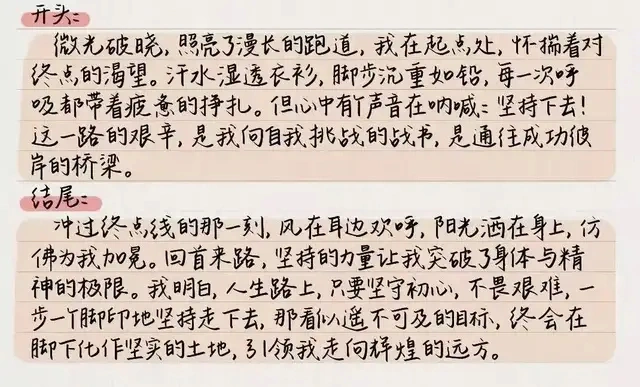 开头：
微光破晓，照亮了漫长的跑道，我在起点处，怀揣着对
终点的渴望。汗水湿透衣衫，脚步沉重如铅，每一次呼
吸都带着疲惫的挣扎。但心中有个声音在呐喊：坚持下去！
这一路的艰辛，是我向自我挑战的战书，是通往成功彼
岸的桥梁。
结尾：
冲过终点线的那一刻，风在耳边欢呼，阳光洒在身上，仿
佛为我加冕。回首来路，坚持的力量让我突破了身体与精
神的极限。我明白，人生路上，只要坚守初心，不畏艰难，一
步一个脚印地坚持走下去，那看似遥不可及的目标，终会在
脚下化作坚实的土地，引领我走向辉煌的远方。